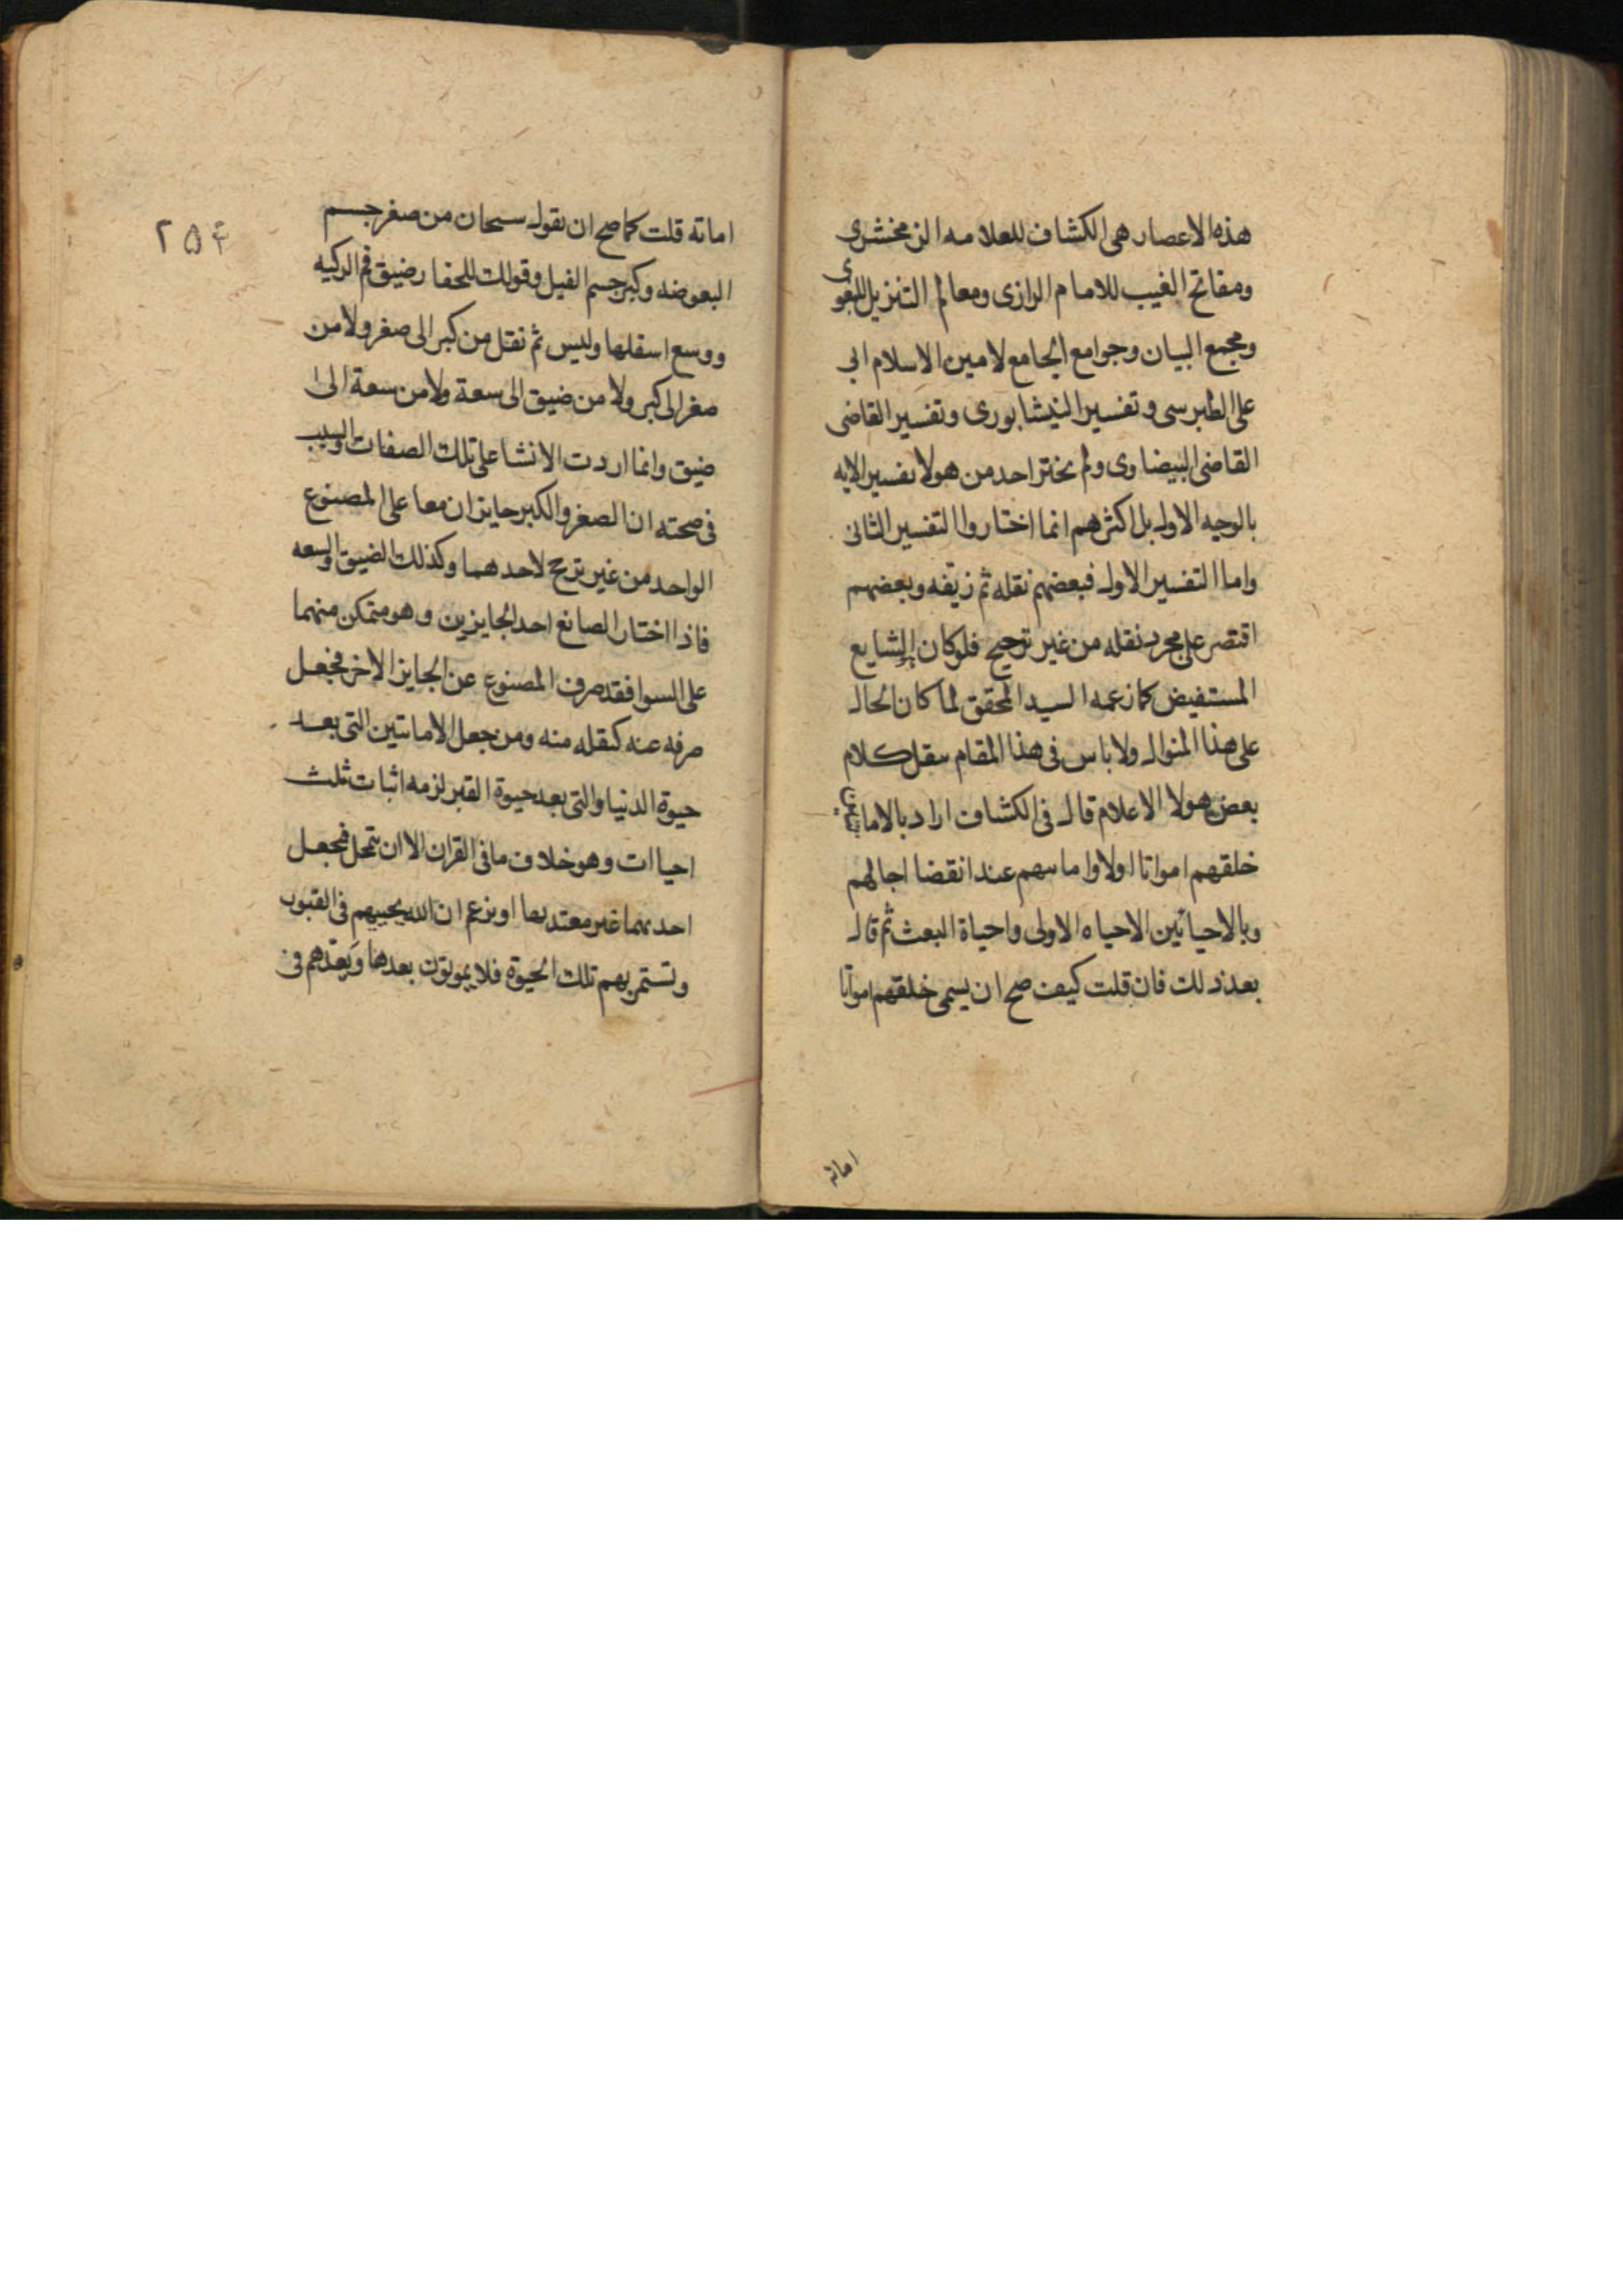 هذه الاعصار هى الكشاف للعلامه الزمخشرى
ومفاتح الغيب للامام الرازى ومعالم التنزيل للبغوى
ومجمع البيان وجوامع الجامع لامين الاسلام ابى
على الطبرسى وتفسير النيشابورى وتفسير القاضى
القاضى البيضاوى ولم يختر احد من هولا تفسير الايه
بالوجيه الاول بل اكثرهم انما اختاروا التفسير الثانى
واما التفسير الاول فبعضهم نقله ثم زيفه وبعضهم
اقتصر على مجرد نقله من غير ترجيح فلو كان الشايع
المستفيض كما زعمه السيد المحقق لما كان الحال
على هذا المنوال ولا باس فى هذا المقام بنقل كلام
بعض هولا الاعلام قال فى الكشاف اراد بالاماتتين
خلقهم امواتا اولا واماتتهم عند انقضا اجالهم
وبالاحيائين الاحياه الاولى واحياة البعث ثم قال
بعد ذلك فان قلت كيف صح ان يسمى خلقهم امواتا
اماتة
٢٥٤
اماتة قلت كما صح ان تقول سبحان من صغر جسم
البعوضه وكبر جسم الفيل وقولك للحفار ضيق فم الركيه
ووسع اسفلها وليس ثم نقل من كبر الى صغر ولا من
صغر الى كبر ولا من ضيق الى سعة ولا من سعة الى
ضيق وانما اردت الانشا على تلك الصفات والسبب
فى صحته ان الصغر والكبر جايزان معا على المصنوع
الواحد من غير ترجح لاحدهما وكذلك الضيق والسعه
فاذا اختار الصانع احد الجايزين وهو متمكن منهما
على السوا فقد صرف المصنوع عن الجايز الاخر فجعل
صرفه عنه كنقله منه ومن جعل الاماتتين التى بعد
حيوة الدنيا والتى بعد حيوة القبر لزمه اثبات ثلث
احياات وهو خلاف ما فى القران الا ان يتمحل فيجعل
احديهما غير معتد بها او يزعم ان الله يحييهم فى القبور
وتستمر بهم تلك الحيوة فلا يموتون بعدها ويعدهم فى